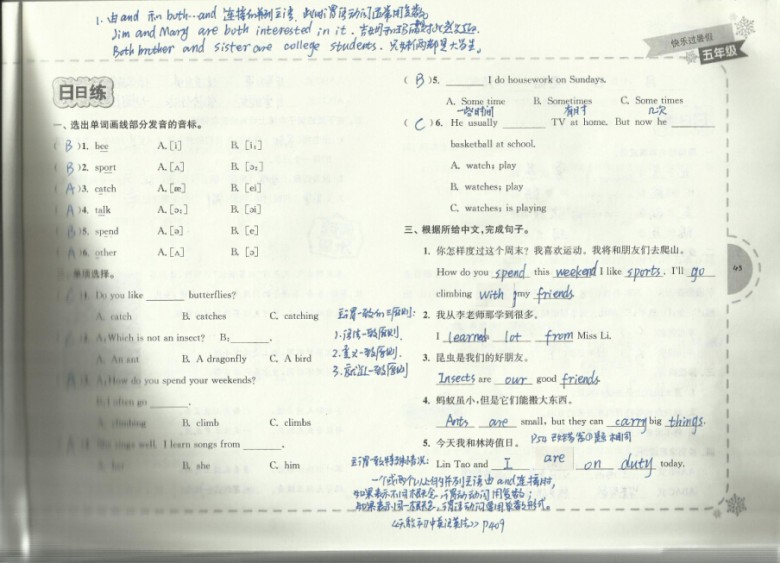 1. 由and 和 both...and 连接的并列主语, 此时谓语动词通常用复数.
Jim and Mary are both interested in it.
Both brother and sister are college students. 兄妹俩都是大学生。
快乐过暑假
五年级
日日练
一、选出单词画线部分发音的音标。
( B )1. bee A. [i] B. [iː]
( B )2. sport A. [ʌ] B. [ɔː]
( A )3. catch A. [æ] B. [ei]
( A )4. talk A. [ɔː] B. [ai]
( B )5. spend A. [ə] B. [e]
( A )6. other A. [ʌ] B. [ɔ]
二、单项选择。
( C )1. Do you like ______ butterflies?
A. catch B. catches C. catching
( C )2. A: Which is not an insect? B: ______.
A. An ant B. A dragonfly C. A bird
( A )3. A: How do you spend your weekends?
B: I often go ______.
A. climbing B. climb C. climbs
)4. She sings well. I learn songs from ______.
A. her B. she C. him
( B )5. ______ I do housework on Sundays.
A. Some time B. Sometimes C. Some times
一些时间 有时 几次
( C )6. He usually ______ TV at home. But now he ______
basketball at school.
A. watch; play
B. watches; play
C. watches; is playing
三、根据所给中文,完成句子。
1. 你怎样度过这个周末? 我喜欢运动。我将和朋友们去爬山。
How do you spend this weekend? I like sports. I'll go
climbing with my friends
2. 我从李老师那学到很多。
I learned lot from Miss Li.
3. 昆虫是我们的好朋友。
Insects are our good friends
4. 蚂蚁虽小,但是它们能搬大东西。
Ants are small, but they can carry big things.
5. 今天我和林涛值日。
Lin Tao and I are on duty today.
主谓一致的三原则:
1. 语法一致原则.
2. 意义一致原则.
3. 就近一致原则
主谓一致特殊情况:
一个或两个以上的并列主语由and连接时,
如果表示不同概念, 谓语动词用复数;
如果表示同一概念, 谓语动词用单数形式。
P409
5